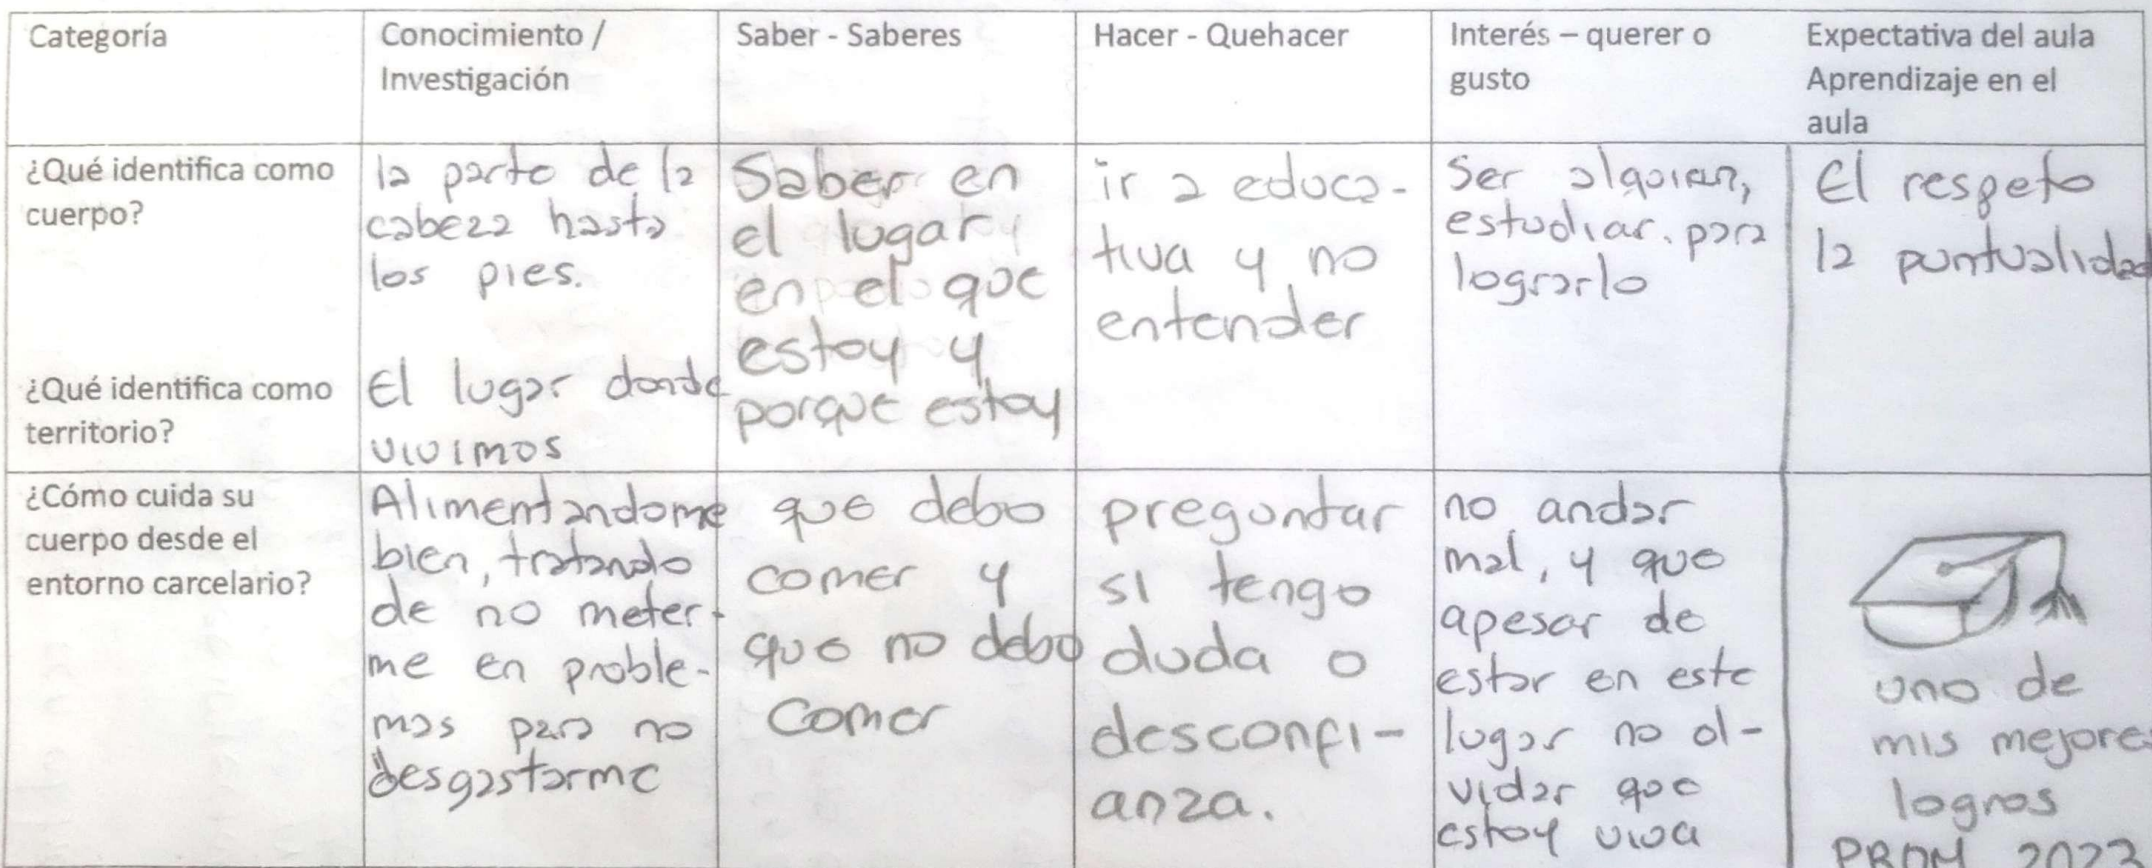 Categoría
Conocimiento /
Investigación
Saber - Saberes
Hacer - Quehacer
Interés – querer o
gusto
Expectativa del aula
Aprendizaje en el
aula
¿Qué identifica como
cuerpo?
¿Qué identifica como
territorio?
la parte de la
cabeza hasta
los pies.
El lugar donde
vivimos
Saber en
el lugar
en el que
estoy y
porque estoy
ir a educa-
tiva y no
entender
Ser alguien,
estudiar. para
lograrlo
El respeto
la puntualidad
¿Cómo cuida su
cuerpo desde el
entorno carcelario?
Alimentandome
bien, tratando
de no meter-
me en proble-
mas para no
desgastarme
que debo
comer y
que no debo
Comer
preguntar
si tengo
duda o
desconfi-
anza.
no andar
mal, y que
apesar de
estar en este
lugar no ol-
vidar que
estoy viva
uno de
mis mejores
logros
PROM 2023